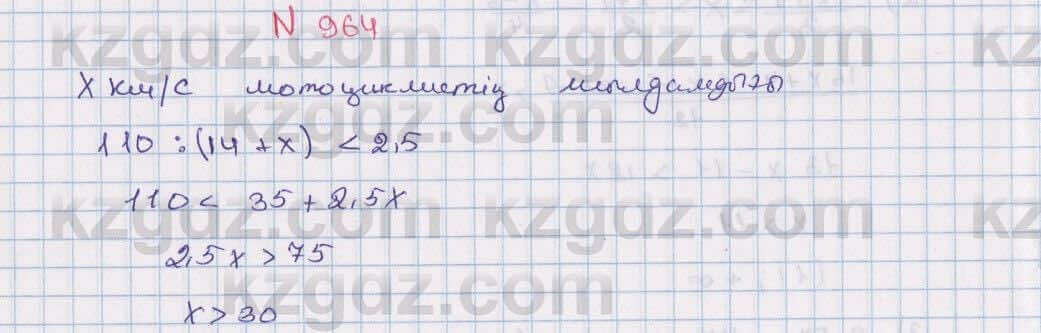 N 964
x км/с мотоциклистің жылдамдығы
110 : (14 + x) < 2,5
110 < 35 + 2,5x
2,5x > 75
x > 30
kzgdz.com kzgdz.com kz
kzgdz.com kzgdz.com kz
kzgdz.com